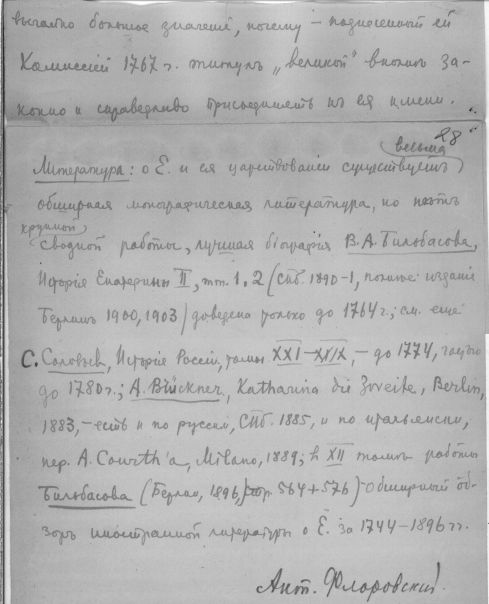 вызвало большое значенія, почему – поднесенный ей
Комиссіей 1767 г. титулъ „великой“ вполнѣ за-
конно и справедливо присоединяетъ къ ея имени.
28
Литература: о Е. и ея царствованіи существуетъ весьма
обширная монографическая литература, но нѣтъ
крупной
сводной работы, лучшая біографія В. А. Бильбасова,
Исторія Екатерины II, тт. 1. 2 (Спб. 1890-1, полное изданіе
Берлинъ 1900, 1903) доведена только до 1764 г.; см. еще
С. Соловьев, Исторія Россіи, томы XXI–XXIX, – до 1774, частью
до 1780 г.; A. Brückner, Katharina die Zweite, Berlin,
1883, – есть и по русски, Спб. 1885, и по итальянски,
пер. A. Courth'a, Milano, 1889; въ XII томѣ работы
Бильбасова (Берлин, 1896, стр. 564+576) – обширный об-
зоръ иностранной литературы о Е. за 1744–1896 гг.
Ант. Флоровскій.